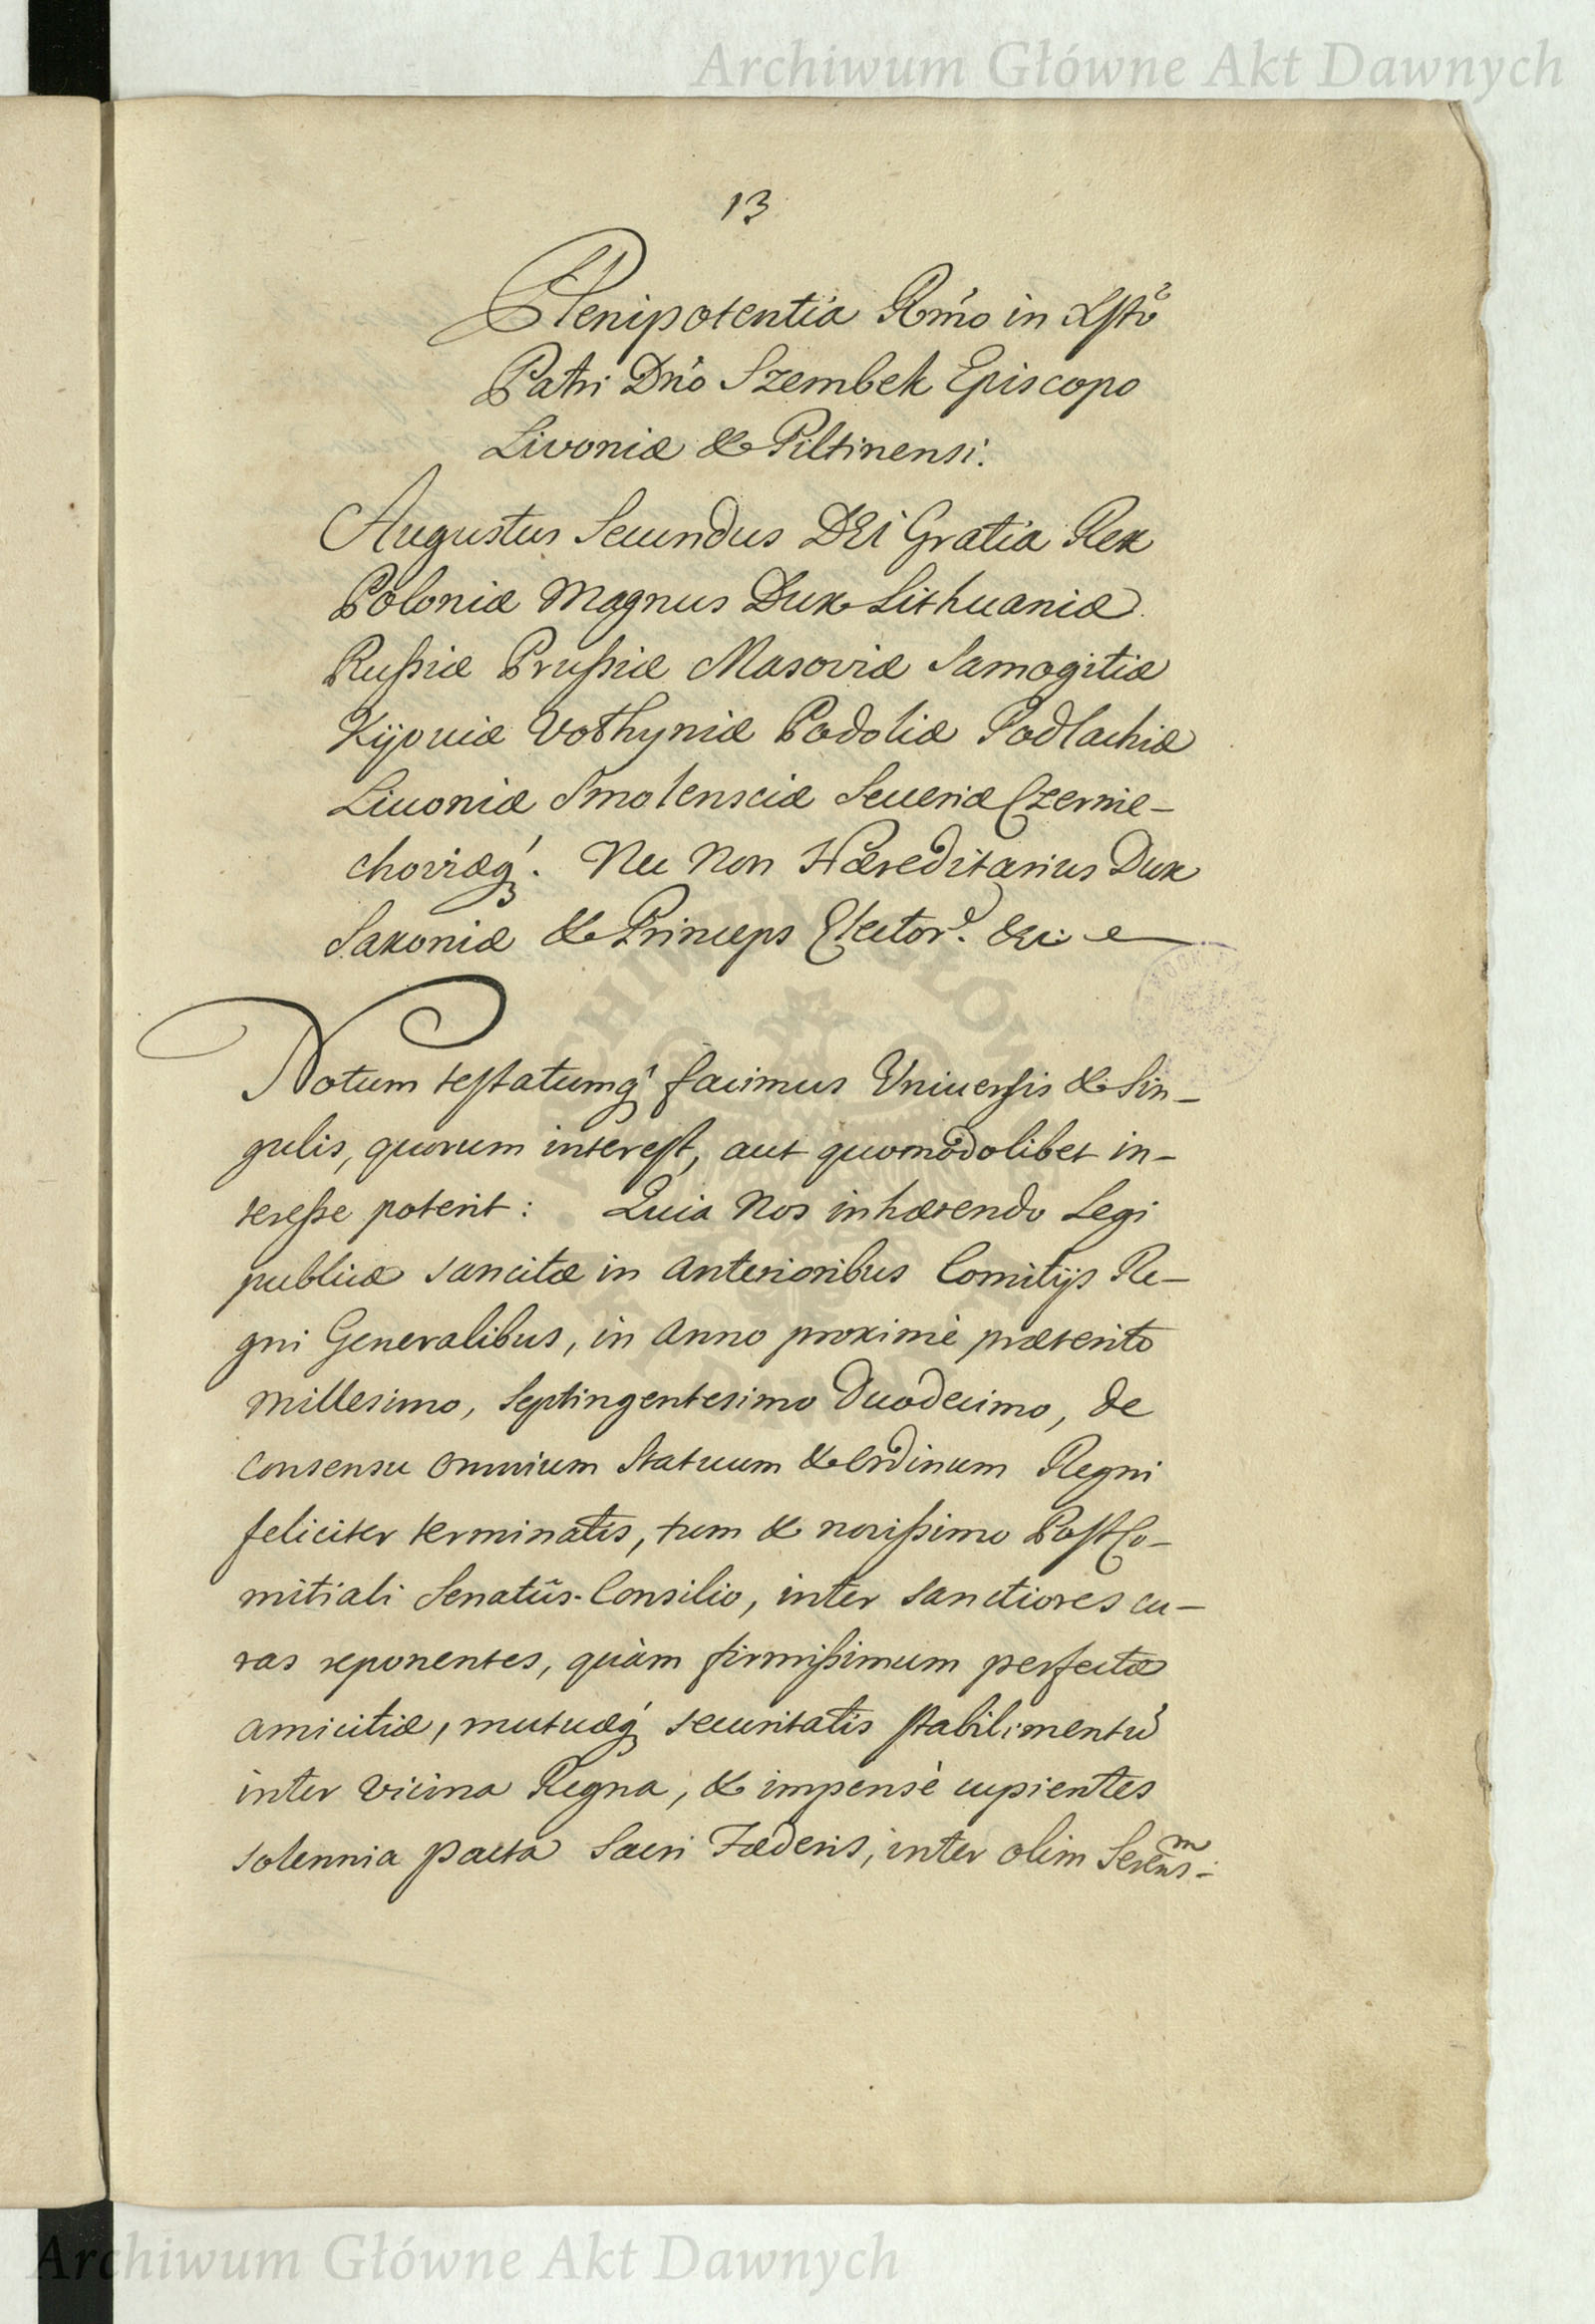 Archiwum Główne Akt Dawnych
13
Plenipotentia Rm̃o in Xstõ
Patri Dnõ Szembek Episcopo
Livoniæ & Piltinensi.
Augustus Secundus DEI Gratia Rex
Poloniæ Magnus Dux Lithuaniæ
Rußiæ Prußiæ Masoviæ Samogitiæ
Kijouiæ Volhyniæ Podoliæ Podlachiæ
Liuoniæ Smolensciæ Seueriæ Czernie-
choviæq́. Nec Non Hæreditarius Dux
Saxoniæ & Princeps Elector. &c:
Notum testatumq́ facimus Vniuersis & Sin-
gulis, quorum interest, aut quomodolibet in-
tereße poterit: Quia Nos inhærendo Legi
publicæ sancitæ in Anterioribus Comitijs Re-
gni Generalibus, in Anno proximè præterito
Millesimo, Septingentesimo Duodecimo, de
consensu omnium Statuum & Ordinum Regni
feliciter terminatis, tum & novißimo PostCo-
mitiali Senatûs-Consilio, inter sanctiores cu-
ras reponentes, quàm firmißimum perfectæ
amicitiæ, mutuæq́ securitatis stabilimentũ
inter vicina Regna, & impensè cupientes
solennia pacta Sacri Fæderis, inter olim Serens̃m:
Archiwum Główne Akt Dawnych